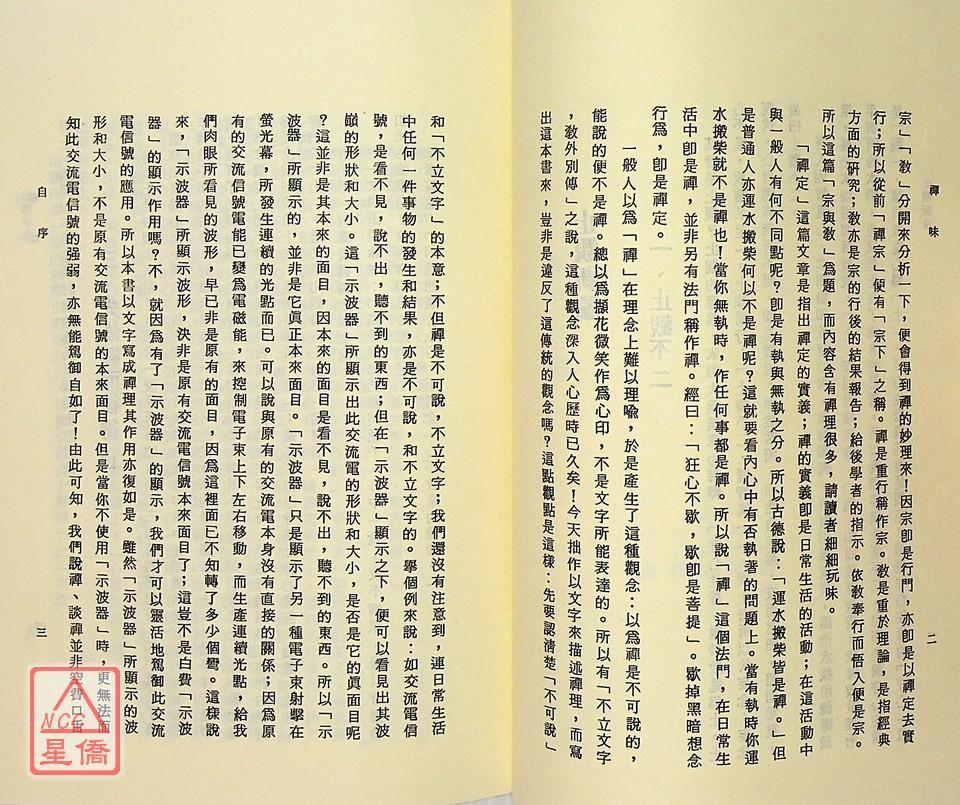 禪味
二
宗」「教」分開來分析一下，便會得到禪的妙理來！因宗卽是行門，亦卽是以禪定去實
行；所以從前「禪宗」便有「宗下」之稱。禪是重行稱作宗。教是重於理論，是指經典
方面的研究；教亦是宗的行後的結果報告；給後學者的指示。依教奉行而悟入便是宗。
所以這篇「宗與教」爲題，而內容含有禪理很多，請讀者細細玩味。
「禪定」這篇文章是指出禪定的實義；禪的實義卽是日常生活的活動；在這活動中
與一般人有何不同點呢？卽是有執與無執之分。所以古德說：「運水搬柴皆是禪。」但
是普通人亦運水搬柴何以不是禪呢？這就要看內心中有否執著的問題上。當有執時你運
水搬柴就不是禪也！當你無執時，作任何事都是禪。所以說「禪」這個法門，在日常生
活中卽是禪，並非另有法門稱作禪。經曰：「狂心不歇，歇卽是菩提」。歇掉黑暗想念
行爲，卽是禪定。
一般人以爲「禪」在理念上難以理喩，於是產生了這種觀念：以爲禪是不可說的，
能說的便不是禪。總以爲擷花微笑作爲心印，不是文字所能表達的。所以有「不立文字
，教外別傳」之說，這種觀念深入人心歷時已久矣！今天拙作以文字來描述禪理，而寫
出這本書來，豈非是違反了這傳統的觀念嗎？這點觀點是這樣：先要認清楚「不可說」
和「不立文字」的本意；不但禪是不可說，不立文字；我們還沒有注意到，連日常生活
中任何一件事物的發生和結果，亦是不可說，和不立文字的。舉個例來說：如交流電信
號，是看不見，說不出，聽不到的東西；但在「示波器」顯示之下，便可以看見出其波
巔的形狀和大小。這「示波器」所顯示出此交流電的形狀和大小，是否是它的眞面目呢
？這並非是其本來的面目，因本來的面目是看不見，說不出，聽不到的東西。所以「示
波器」所顯示的，並非是它眞正本來面目。「示波器」只是顯示了另一種電子束射擊在
螢光幕，所發生連續的光點而已。可以說與原有的交流電本身沒有直接的關係；因爲原
有的交流信號電能已變爲電磁能，來控制電子束上下左右移動，而生產連續光點，給我
們肉眼所看見的波形，早已非是原有的面目，因爲這裡面已不知轉了多少個彎。這樣說
來，「示波器」所顯示波形，決非是原有交流電信號本來面目了；這豈不是白費「示波
器」的顯示作用嗎？不，就因爲有了「示波器」的顯示，我們才可以靈活地駕御此交流
電信號的應用。所以本書以文字寫成禪理其作用亦復如是。雖然「示波器」所顯示的波
形和大小，不是原有交流電信號的本來面目。但是當你不使用「示波器」時，更無法而
知此交流電信號的强弱，亦無能駕御自如了！由此可知，我們說禪、談禪並非空費口舌
自序
三
NCC
星僑